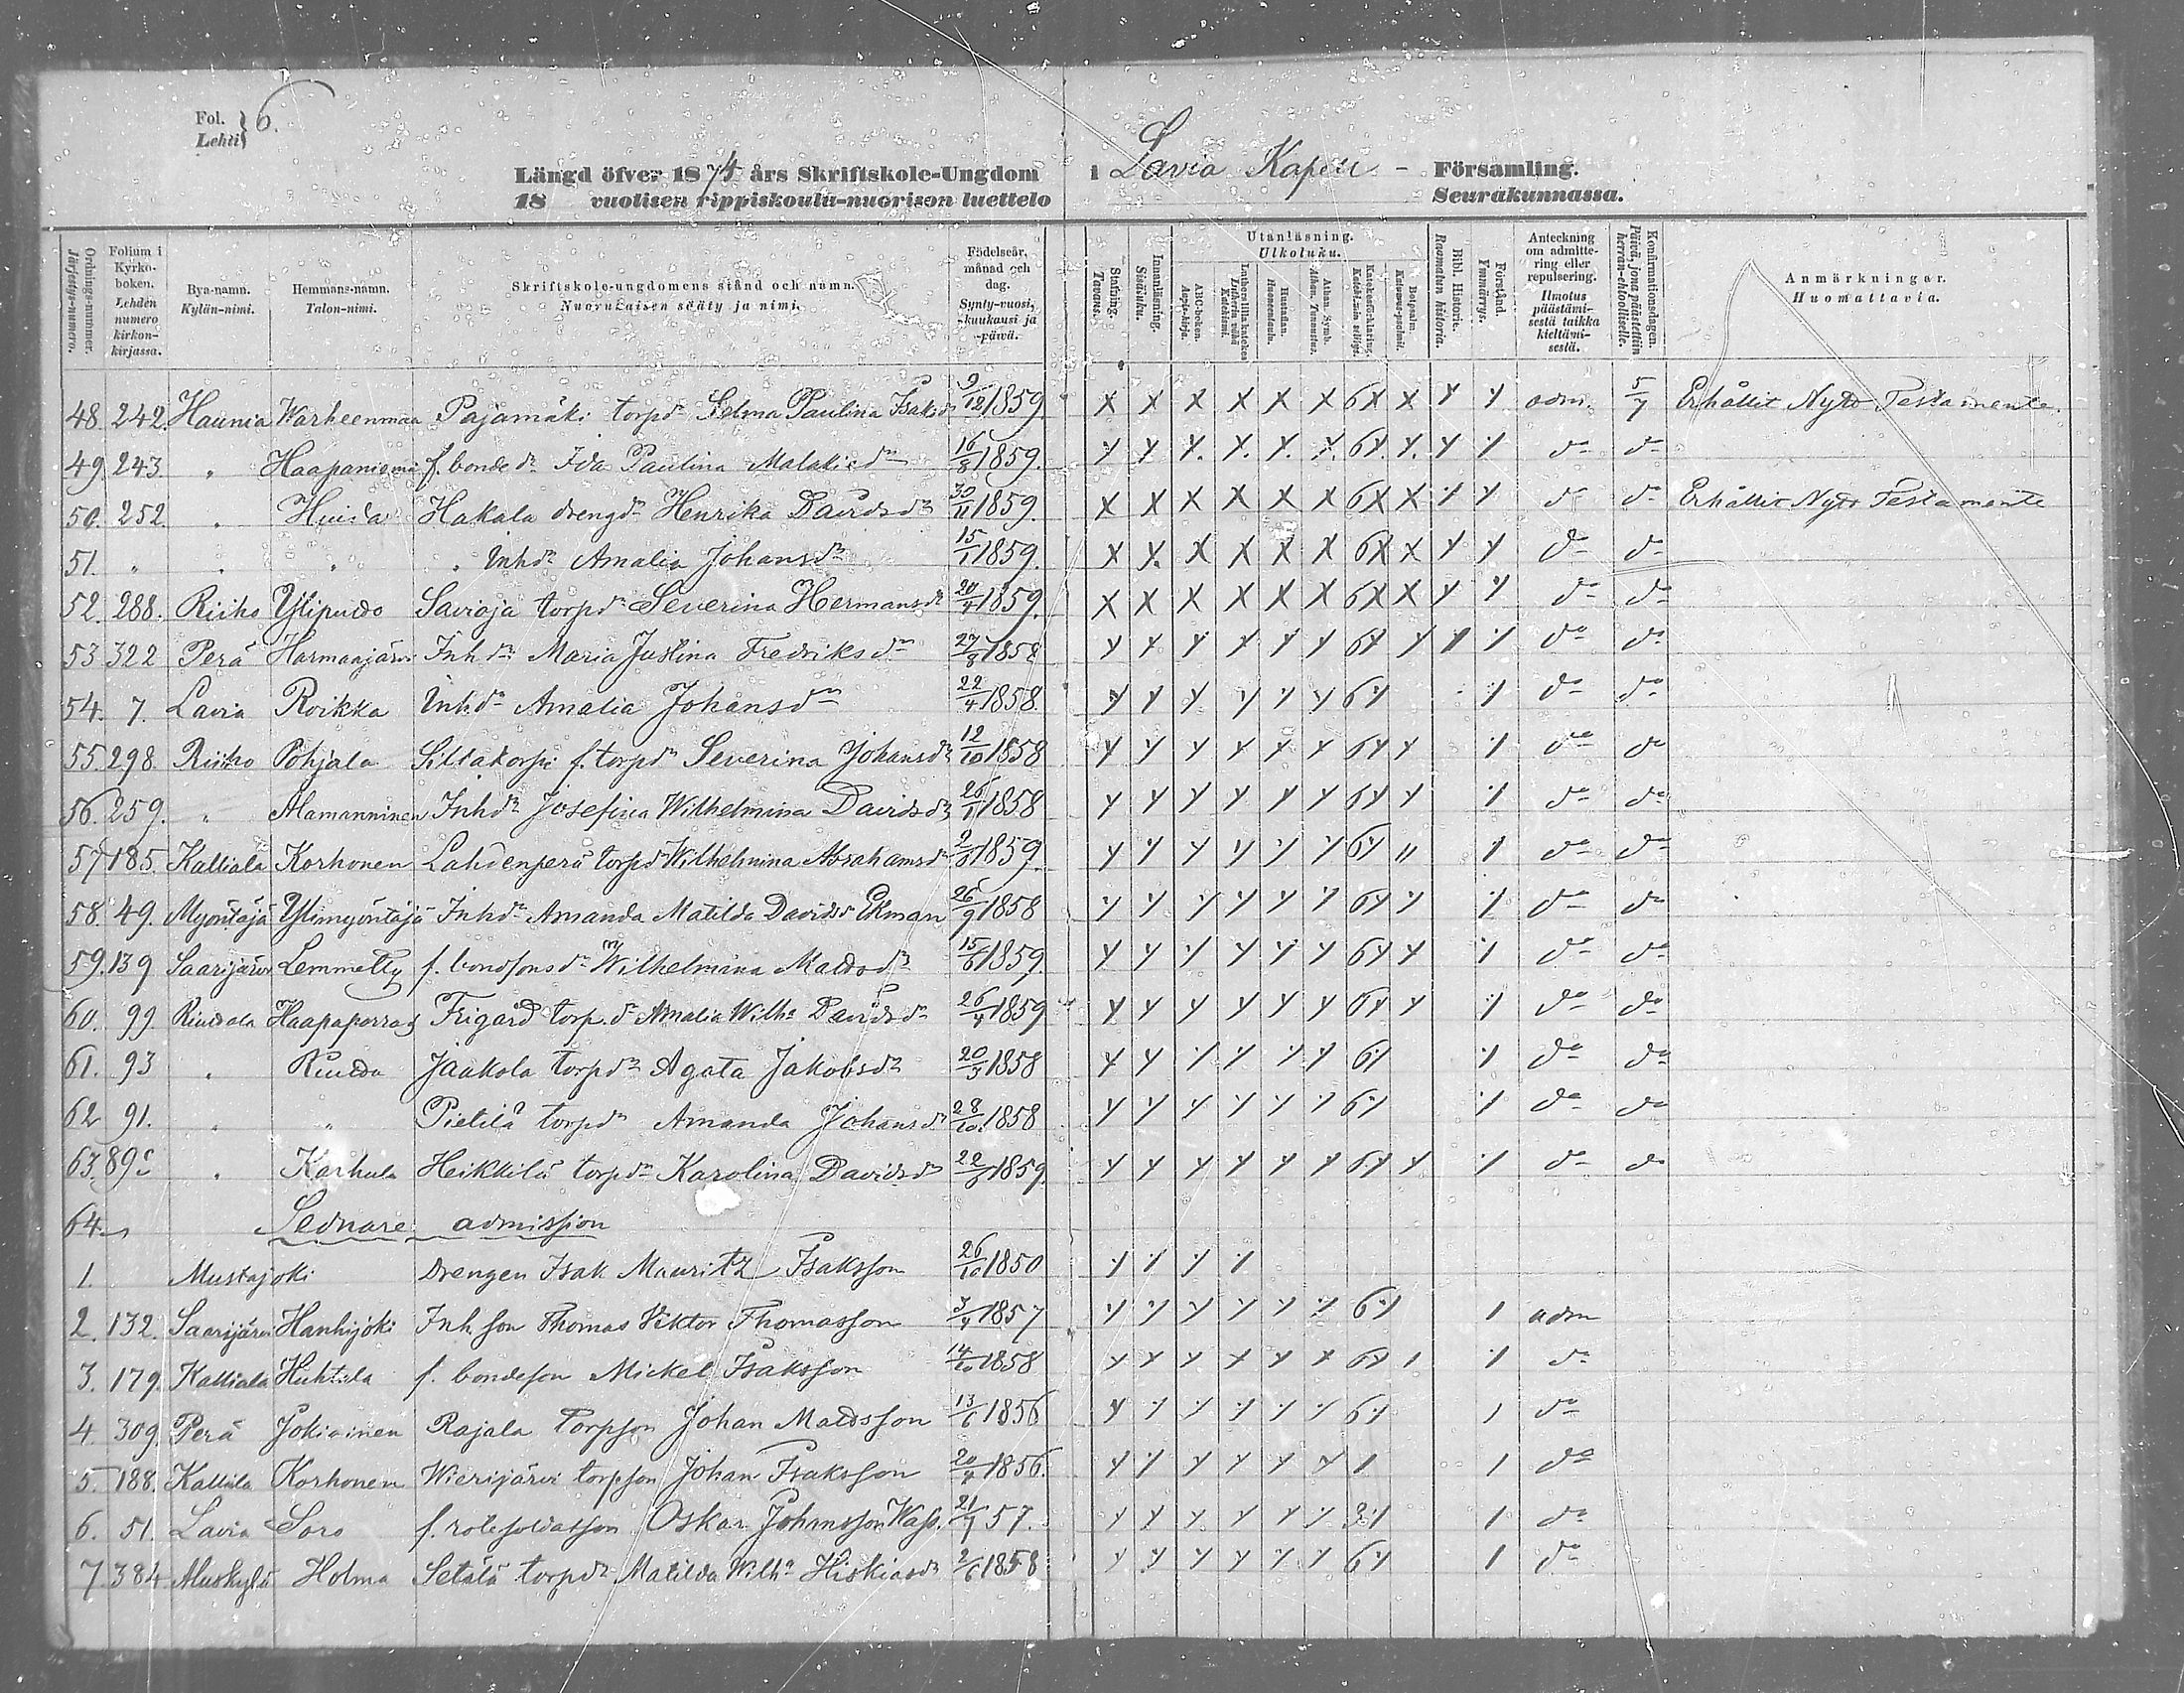 Fol. Lehti } 6.
Längd öfver 1874 års Skriftskole-Ungdom i Lavia Kapell - Församling.
18 vuotisen rippiskoulu-nuorison luettelo Seurakunnassa.
Ordnings-nummer. Järjestys-numero.
Folium i Kyrko-boken. Lehden numero kirkon-kirjassa.
Bya-namn. Kylän-nimi.
Hemmans-namn. Talon-nimi.
Skriftskole-ungdomens stånd och namn. Nuorukaisen sääty ja nimi.
Födelseår, månad och dag. Synty-vuosi, -kuukausi ja -päivä.
Stafning. Tavaus.
Innanläsning. Sisäluku.
Utanläsning. Ulkoluku.
ABC-boken. Aapis-kirja.
Lutheri lilla katekes Lutherin vähä Katekismi.
Hustaflan. Huoneentaulu.
Athan. Symb. Athan. Tunnustus.
Katekesförklaring. Katekismin selitys.
Botpsalm. Katumus-psalmi.
Bibl. Historie. Raamatun historia.
Förstånd. Ymmärrys.
Anteckning om admittering eller repulsering. Ilmoitus päästämisestä taikka kieltämisestä.
Konfirmationsdagen. Päivä, jona päästettiin herran-ehtoolliselle.
Anmärkningar. Huomattavia.
48. 242. Haunia Warheenmaa Pajamäki torpdr Selma Paulina Isaksdr 9/12 1859. x x x x x x 6x x y y adm. 5/7 Erhållit Nytt Testamente.
49. 243. " Haapaniemi f. bondedr Ida Paulina Malakiedr 16/8 1859. y y y y y y 6y y y y do do
50. 252. " Huida Hakala drengdr Henrika Davidsdr 30/11 1859. x x x x x x 6x x y y do do Erhållit Nytt Testamente
51. " " " " Inhdr Amalia Johansdr 15/1 1859. x x x x x x 6x x y y do do
52. 288. Riiho Ylipuldo Savioja torpdr Severina Hermansdr 20/4 1859. x x x x x x 6x x y y do do
53 322 Perä Harmaajärvi Inhdr Maria Justina Fredriksdr 27/8 1858 y y y y y y 6y y y y do do
54. 7. Lavia Roikka Inhdr Amalia Johansdr 22/4 1858. y y y y y y 6y y do do
55. 298. Riiho Pohjala Siltakorpi f. torpdr Severina Johansdr 12/10 1858 y y y y y y 6y y y do do
56. 259. " Alamanninen Inhdr Josefina Wilhelmina Davidsdr 26/1 1858 y y y y y y 6y y y do do
57 185. Kalliala Korhonen Lahdenperä torpdr Wilhelmina Abrahamsdr 2/3 1859. y y y y y y 6y y y do do
58. 49. Myöntäjä Ylimyöntäjä Inhdr Amanda Matilda Davidsdr Ekman 26/9 1858 y y y y y y 6y y y do do
59. 139 Saarijärvi Lemmetty f. bondsonsdr Wilhelmina Mattsdr 15/6 1859. y y y y y y 6y y y do do
60. 99 Haapaporras Frigård torp.dr Amalia Wilha Davidsdr 26/4 1859 y y y y y y 6y y y do do
61. 93 " Jaakola torpdr Agata Jakobsdr 20/5 1858 y y y y y y 6y y do do
62 91. " " Pietilä torpdr Amanda Johansdr 28/10 1858 y y y y y y 6y y do do
63. 89c " Karhula Heikkilä torpdr Karolina Davidsdr 1859. y y y y y y 6y y y do do
64. Sednare admission
1. Mustajoki Drengen Isak Mauritz Isaksson 26/10 1850 y y y y
2. 132. Saarijärvi Hanhijoki Inh. son Thomas Viktor Thomasson 3/4 1857 y y y y y y 6y 1 adm
3. 179. Kalliala Huhtala f. bondeson Mickel Isaksson 14/10 1858 y y y y y y 6y 1 y do
4. 309. Perä Jokioinen Rajala torpson Johan Mattsson 13/6 1856 y y y y y y 6y 1 do
5. 188. Kalliala Korhonen Wierijärvi torpson Johan Isaksson 20/4 1856. y y y y y y 1 1 do
6. 51. Lavia Soro f. rotesoldatson Oskar Johansson Wass. 21/7 57. y y y y y y 3y 1 do
7. 384 Muskylä Holma Setälä torpdr Matilda Wilha Hiskiasdr 2/6 1858 y y y y y y 6y 1 do